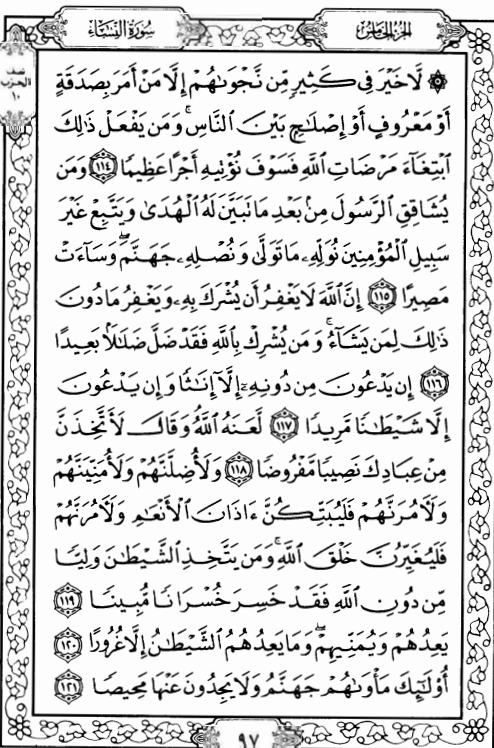 سُورَةُ النِّسَاءِ الجُزْءُ الخَامِسُ
نصف
الحزب
١٠
۞ لَّا خَيْرَ فِي كَثِيرٍ مِّن نَّجْوَىٰهُمْ إِلَّا مَنْ أَمَرَ بِصَدَقَةٍ
أَوْ مَعْرُوفٍ أَوْ إِصْلَٰحٍ بَيْنَ النَّاسِ ۚ وَمَن يَفْعَلْ ذَٰلِكَ
ابْتِغَآءَ مَرْضَاتِ اللَّهِ فَسَوْفَ نُؤْتِيهِ أَجْرًا عَظِيمًا ﴿١١٤﴾ وَمَن
يُشَاقِقِ الرَّسُولَ مِنۢ بَعْدِ مَا تَبَيَّنَ لَهُ الْهُدَىٰ وَيَتَّبِعْ غَيْرَ
سَبِيلِ الْمُؤْمِنِينَ نُوَلِّهِۦ مَا تَوَلَّىٰ وَنُصْلِهِۦ جَهَنَّمَ ۖ وَسَآءَتْ
مَصِيرًا ﴿١١٥﴾ إِنَّ اللَّهَ لَا يَغْفِرُ أَن يُشْرَكَ بِهِۦ وَيَغْفِرُ مَا دُونَ
ذَٰلِكَ لِمَن يَشَآءُ ۚ وَمَن يُشْرِكْ بِاللَّهِ فَقَدْ ضَلَّ ضَلَٰلًۢا بَعِيدًا
﴿١١٦﴾ إِن يَدْعُونَ مِن دُونِهِۦٓ إِلَّآ إِنَٰثًا وَإِن يَدْعُونَ
إِلَّا شَيْطَٰنًا مَّرِيدًا ﴿١١٧﴾ لَّعَنَهُ اللَّهُ ۘ وَقَالَ لَأَتَّخِذَنَّ
مِنْ عِبَادِكَ نَصِيبًا مَّفْرُوضًا ﴿١١٨﴾ وَلَأُضِلَّنَّهُمْ وَلَأُمَنِّيَنَّهُمْ
وَلَءَامُرَنَّهُمْ فَلَيُبَتِّكُنَّ ءَاذَانَ الْأَنْعَٰمِ وَلَءَامُرَنَّهُمْ
فَلَيُغَيِّرُنَّ خَلْقَ اللَّهِ ۚ وَمَن يَتَّخِذِ الشَّيْطَٰنَ وَلِيًّا
مِّن دُونِ اللَّهِ فَقَدْ خَسِرَ خُسْرَانًا مُّبِينًا ﴿١١٩﴾
يَعِدُهُمْ وَيُمَنِّيهِمْ ۖ وَمَا يَعِدُهُمُ الشَّيْطَٰنُ إِلَّا غُرُورًا ﴿١٢٠﴾
أُو۟لَٰٓئِكَ مَأْوَىٰهُمْ جَهَنَّمُ وَلَا يَجِدُونَ عَنْهَا مَحِيصًا ﴿١٢١﴾
٩٧